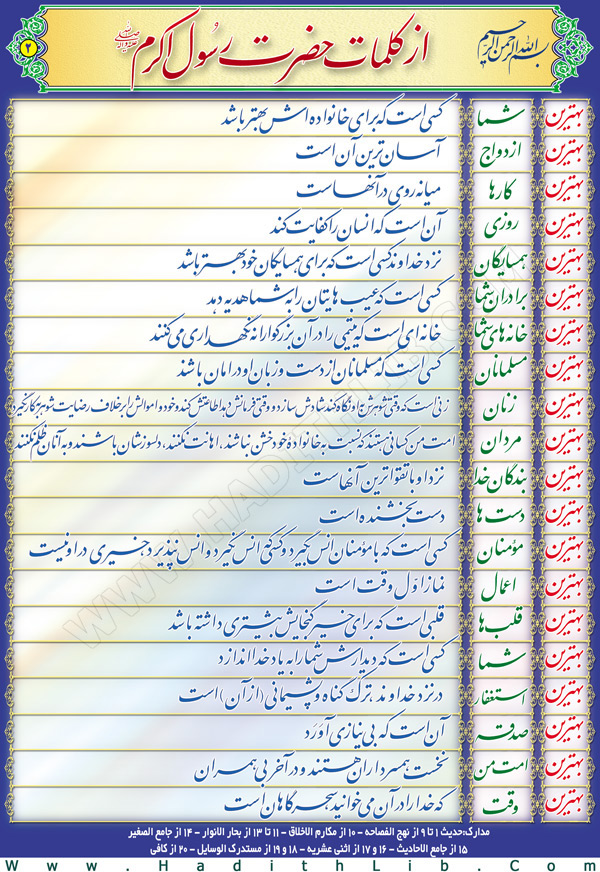 بسم الله الرحمن الرحیم
از کلمات حضرت رسول اکرم
۴
بهترین شما کسی است که برای خانواده اش بهتر باشد
بهترین ازدواج آسان ترین آن است
بهترین کارها میانه روی در آنهاست
بهترین روزی آن است که انسان را کفایت کند
بهترین همسایگان نزد خداوند کسی است که برای همسایگان خود بهتر باشد
بهترین برادران شما کسی است که عیب هایتان را به شما هدیه دهد
بهترین خانه های شما خانه ای است که یتیمی را در آن بزرگوارانه نگهداری می کنند
بهترین مسلمانان کسی است که مسلمانان از دست و زبان او در امان باشند
بهترین زنان زنی است که وقتی شوهرش به او نگاه کند شادش سازد و وقتی فرمانش دهد اطاعتش کند و خود و اموالش را بر خلاف رضایت شوهر به کار نگیرد
بهترین مردان امت من کسانی هستند که نسبت به خانواده خود خشن نباشند، اهانت نکنند، دلسوزشان باشند و به آنان ظلم نکنند
بهترین بندگان خدا نزد او با تقوا ترین آنهاست
بهترین دست ها دست بخشنده است
بهترین مؤمنان کسی است که با مؤمنان انس گیرد و کسی که انس نگیرد و انس نپذیرد، خیری در او نیست
بهترین اعمال نماز اول وقت است
بهترین قلب ها قلبی است که برای خیر گنجایش بیشتری داشته باشد
بهترین شما کسی است که دیدارش شما را به یاد خدا اندازد
بهترین استغفار در نزد خداوند، ترک گناه و پشیمانی (از آن) است
بهترین صدقه آن است که بی نیازی آورد
بهترین امت من نخست همسرداران هستند و در آخر بی همسران
بهترین وقت که خدا را در آن می خوانید سحرگاهان است
مدارک:حدیث ۱ تا ۹ از نهج الفصاحه - ۱۰ از مکارم الاخلاق - ۱۱ تا ۱۳ از بحار الانوار - ۱۴ از جامع الصغیر
۱۵ از جامع الاحادیث - ۱۶ و ۱۷ از اثنی عشریه - ۱۸ و ۱۹ از مستدرک الوسایل - ۲۰ از کافی
www.HadithLib.Com
WWW.HADITHLIB.COM